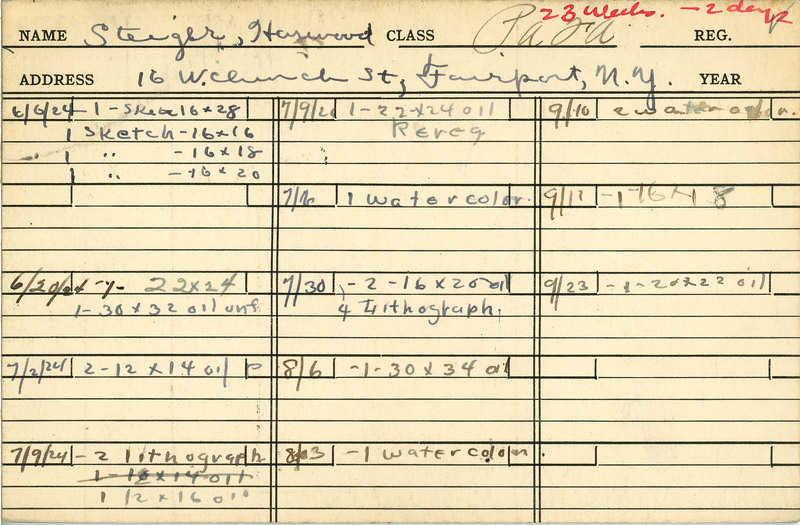 23 Weeks. - 2 days
NAME Steiger, Harwood CLASS REG.
ADDRESS 16 W. Church St, Fairport, N.Y. YEAR
6/6/24 - 1 - Sketc 16x28
1 Sketch - 16x16
1 " - 16x18
1 " - 16x20
6/20/24 -1- 22x24
1- 30x32 oil unf
7/2/24 2 - 12 x 14 oil P
7/9/24 - 2 lithograph
1 - 12x14 oil
1 12 x 16 oil
7/9/2 1 - 22x24 oil
Rereg
7/6 1 watercolor.
7/30 - 2 - 16x20 oil
4 Lithograph.
8/6 -1- 30x34 oil
8/13 - 1 watercolor.
9/10 2 watercolor.
9/17 - 1 - 16x18
9/23 - 1 - 20x22 oil